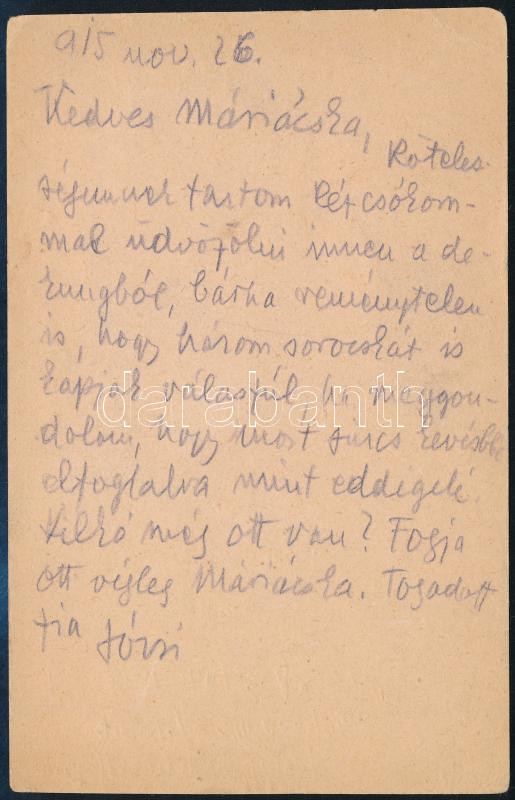 915 nov. 26.
Kedves Máriácska,
Köteles-
ségemnek tartom kézcsókom-
mal üdvözölni innen a de-
kungból, bárha reménytelen
is, hogy három sorocskát is
kapjak válaszúl, ha meggon-
dolom, hogy most sincs kevésbbé
elfoglalva mint eddigelé.
még ott van? Fogja
ott végleg Máriácska. Fogadott
fia Józsi
darabanth